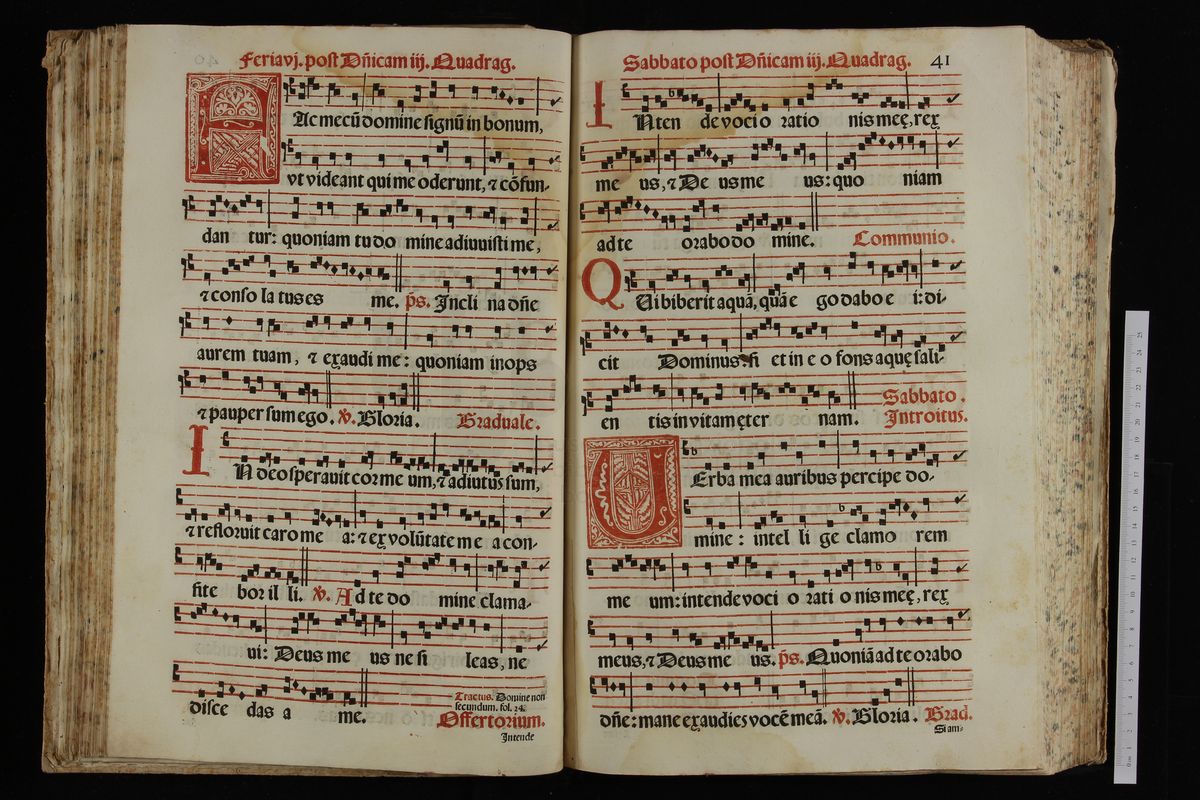 Feria vj. post Dñicam iij. Quadrag.
FAc mecũ domine signũ in bonum,
vt videant qui me oderunt, ⁊ cõfun-
dan tur: quoniam tu do mine adiuuisti me,
⁊ conso la tus es me. p̃s. Incli na dñe
aurem tuam, ⁊ exaudi me: quoniam inops
⁊ pauper sum ego. ℣. Gloria. Graduale.
IN deo sperauit cor me um, ⁊ adiutus sum,
⁊ refloruit caro me a: ⁊ ex volũtate me a con-
fite bor il li. ℣. Ad te do mine clama-
ui: Deus me us ne si leas, ne
disce das a me.
Tractus. Domine non
secundum. fol. 24.
Offertorium.
Intende
Sabbato post Dñicam iij. Quadrag. 41
INten de voci o ratio nis meę, rex
me us, ⁊ De us me us: quo niam
ad te orabo do mine. Communio.
QUi biberit aquã, quã e go dabo e i: di-
cit Dominus: fi et in e o fons aquę sali-
en tis in vitam ęter nam. Sabbato.
Introitus.
UErba mea auribus percipe do-
mine: intel li ge clamo rem
me um: intende voci o rati o nis meę, rex
meus, ⁊ Deus me us. p̃s. Quoniã ad te orabo
dñe: mane exaudies vocẽ meã. ℣. Gloria. Grad.
Si am-